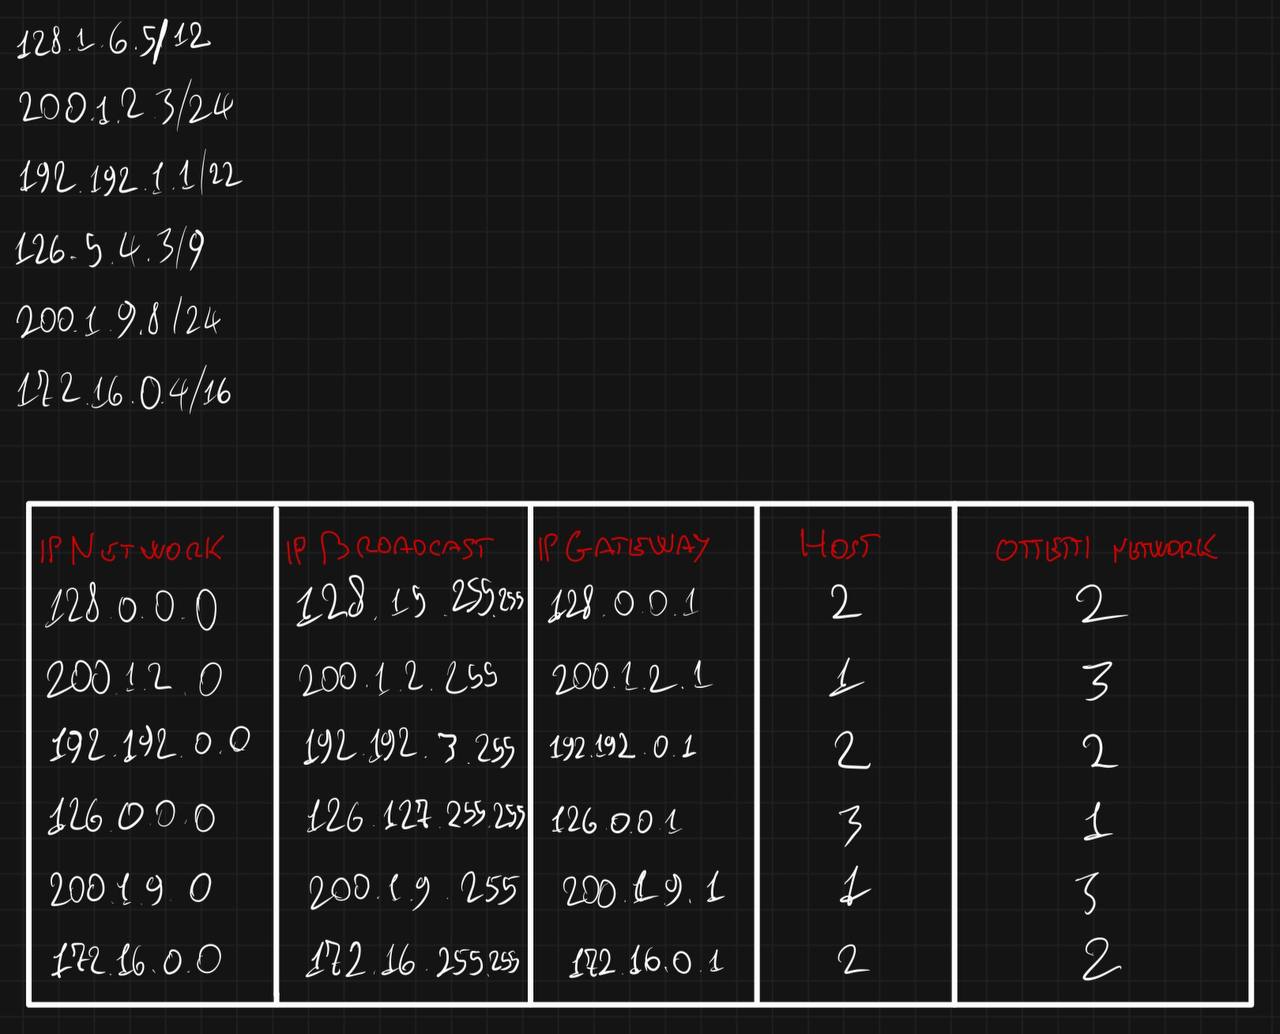 128.1.6.5/12
200.1.2.3/24
192.192.1.1/22
126.5.4.3/9
200.1.9.8/24
172.16.0.4/16
IP NETWORK IP BROADCAST IP GATEWAY HOST OTTETTI NETWORK
128.0.0.0 128.15.255.255 128.0.0.1 2 2
200.1.2.0 200.1.2.255 200.1.2.1 1 3
192.192.0.0 192.192.3.255 192.192.0.1 2 2
126.0.0.0 126.127.255.255 126.0.0.1 3 1
200.1.9.0 200.1.9.255 200.1.9.1 1 3
172.16.0.0 172.16.255.255 172.16.0.1 2 2